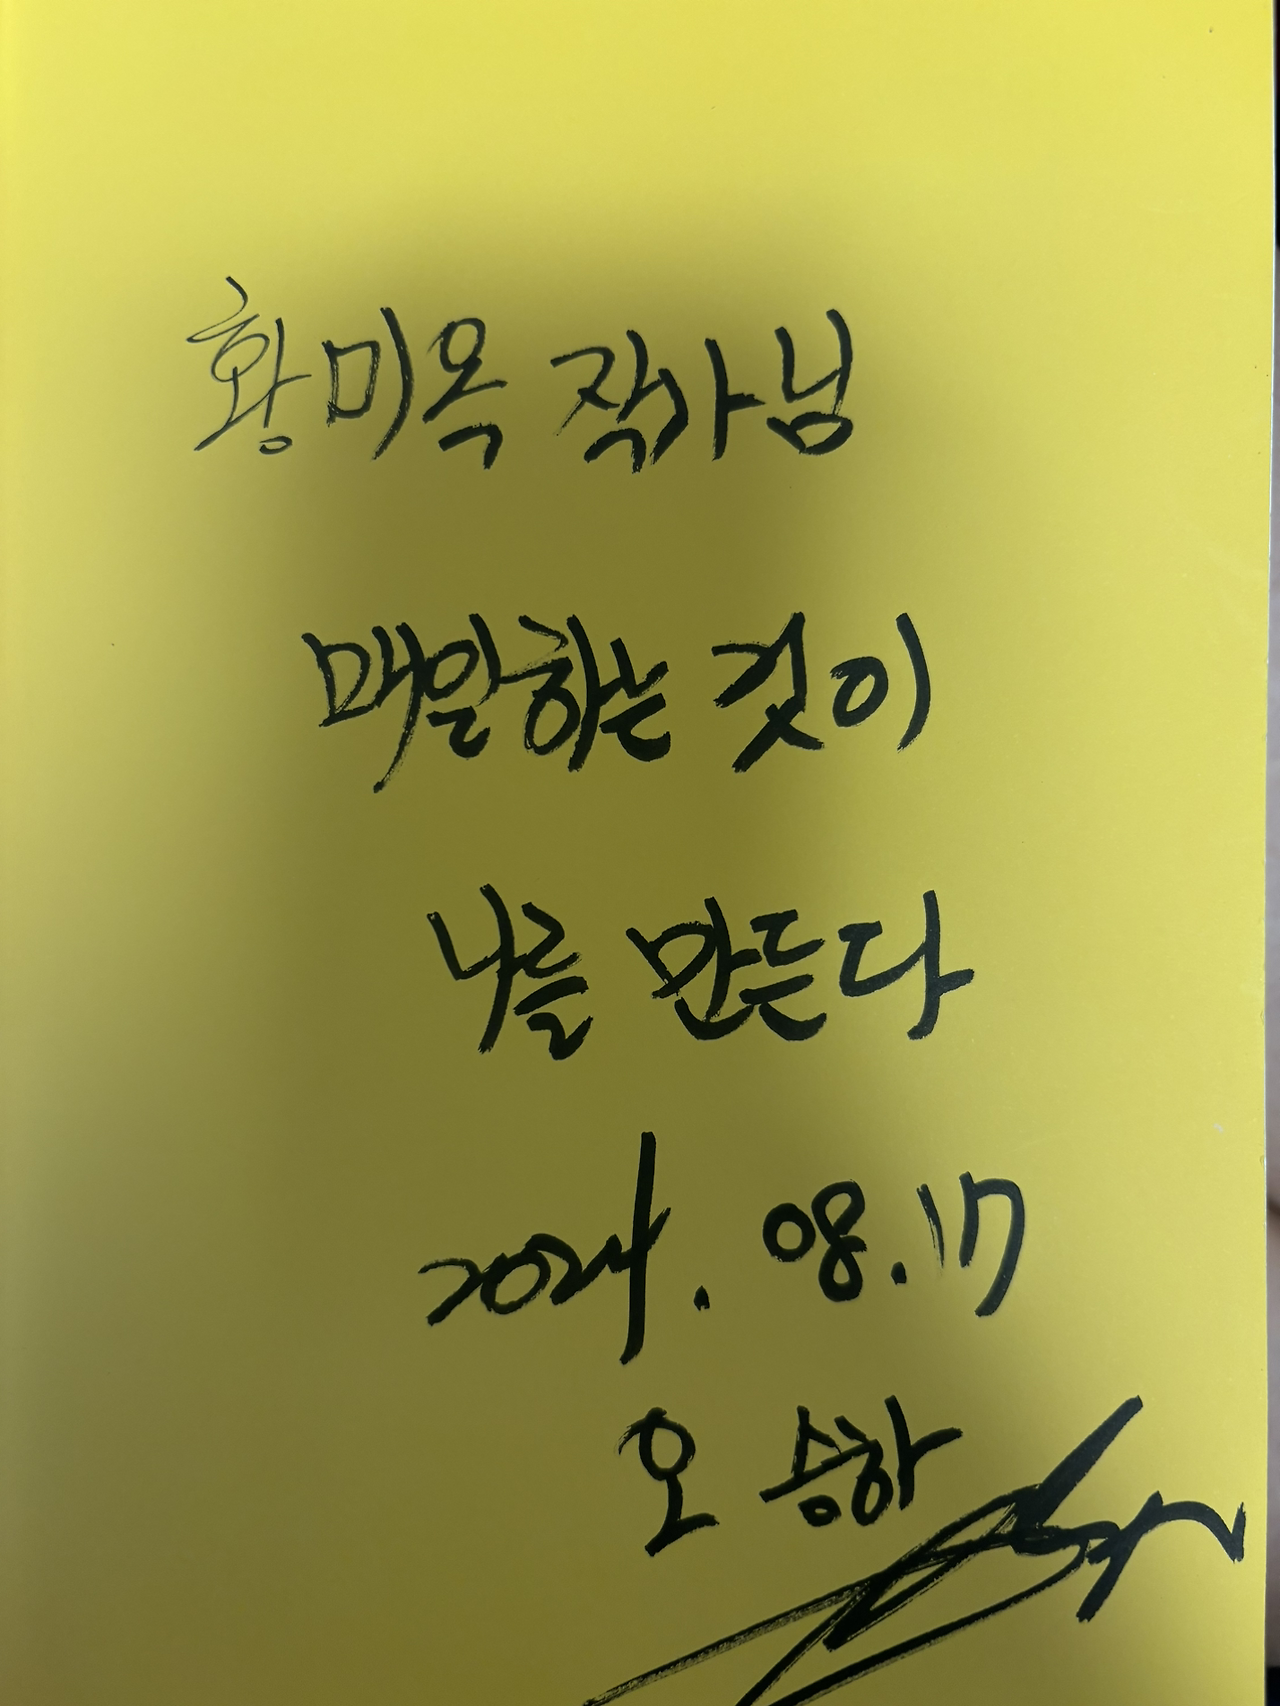 황미옥 작가님
매일하는 것이
나를 만든다
2024. 08. 17
오 승하